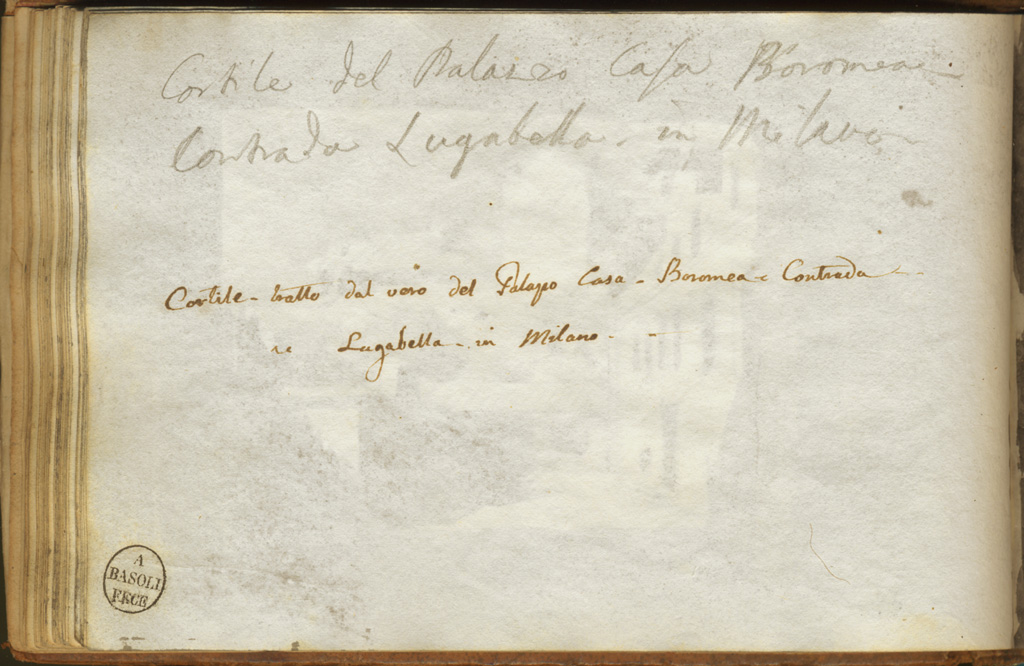 Cortile del Palazzo Casa Boromea
Contrada Lugabella. in Milano
Cortile - tratto dal vero del Palazzo Casa - Boromea - Contrada
Lugabella - in Milano.
A
BASOLI
FECE